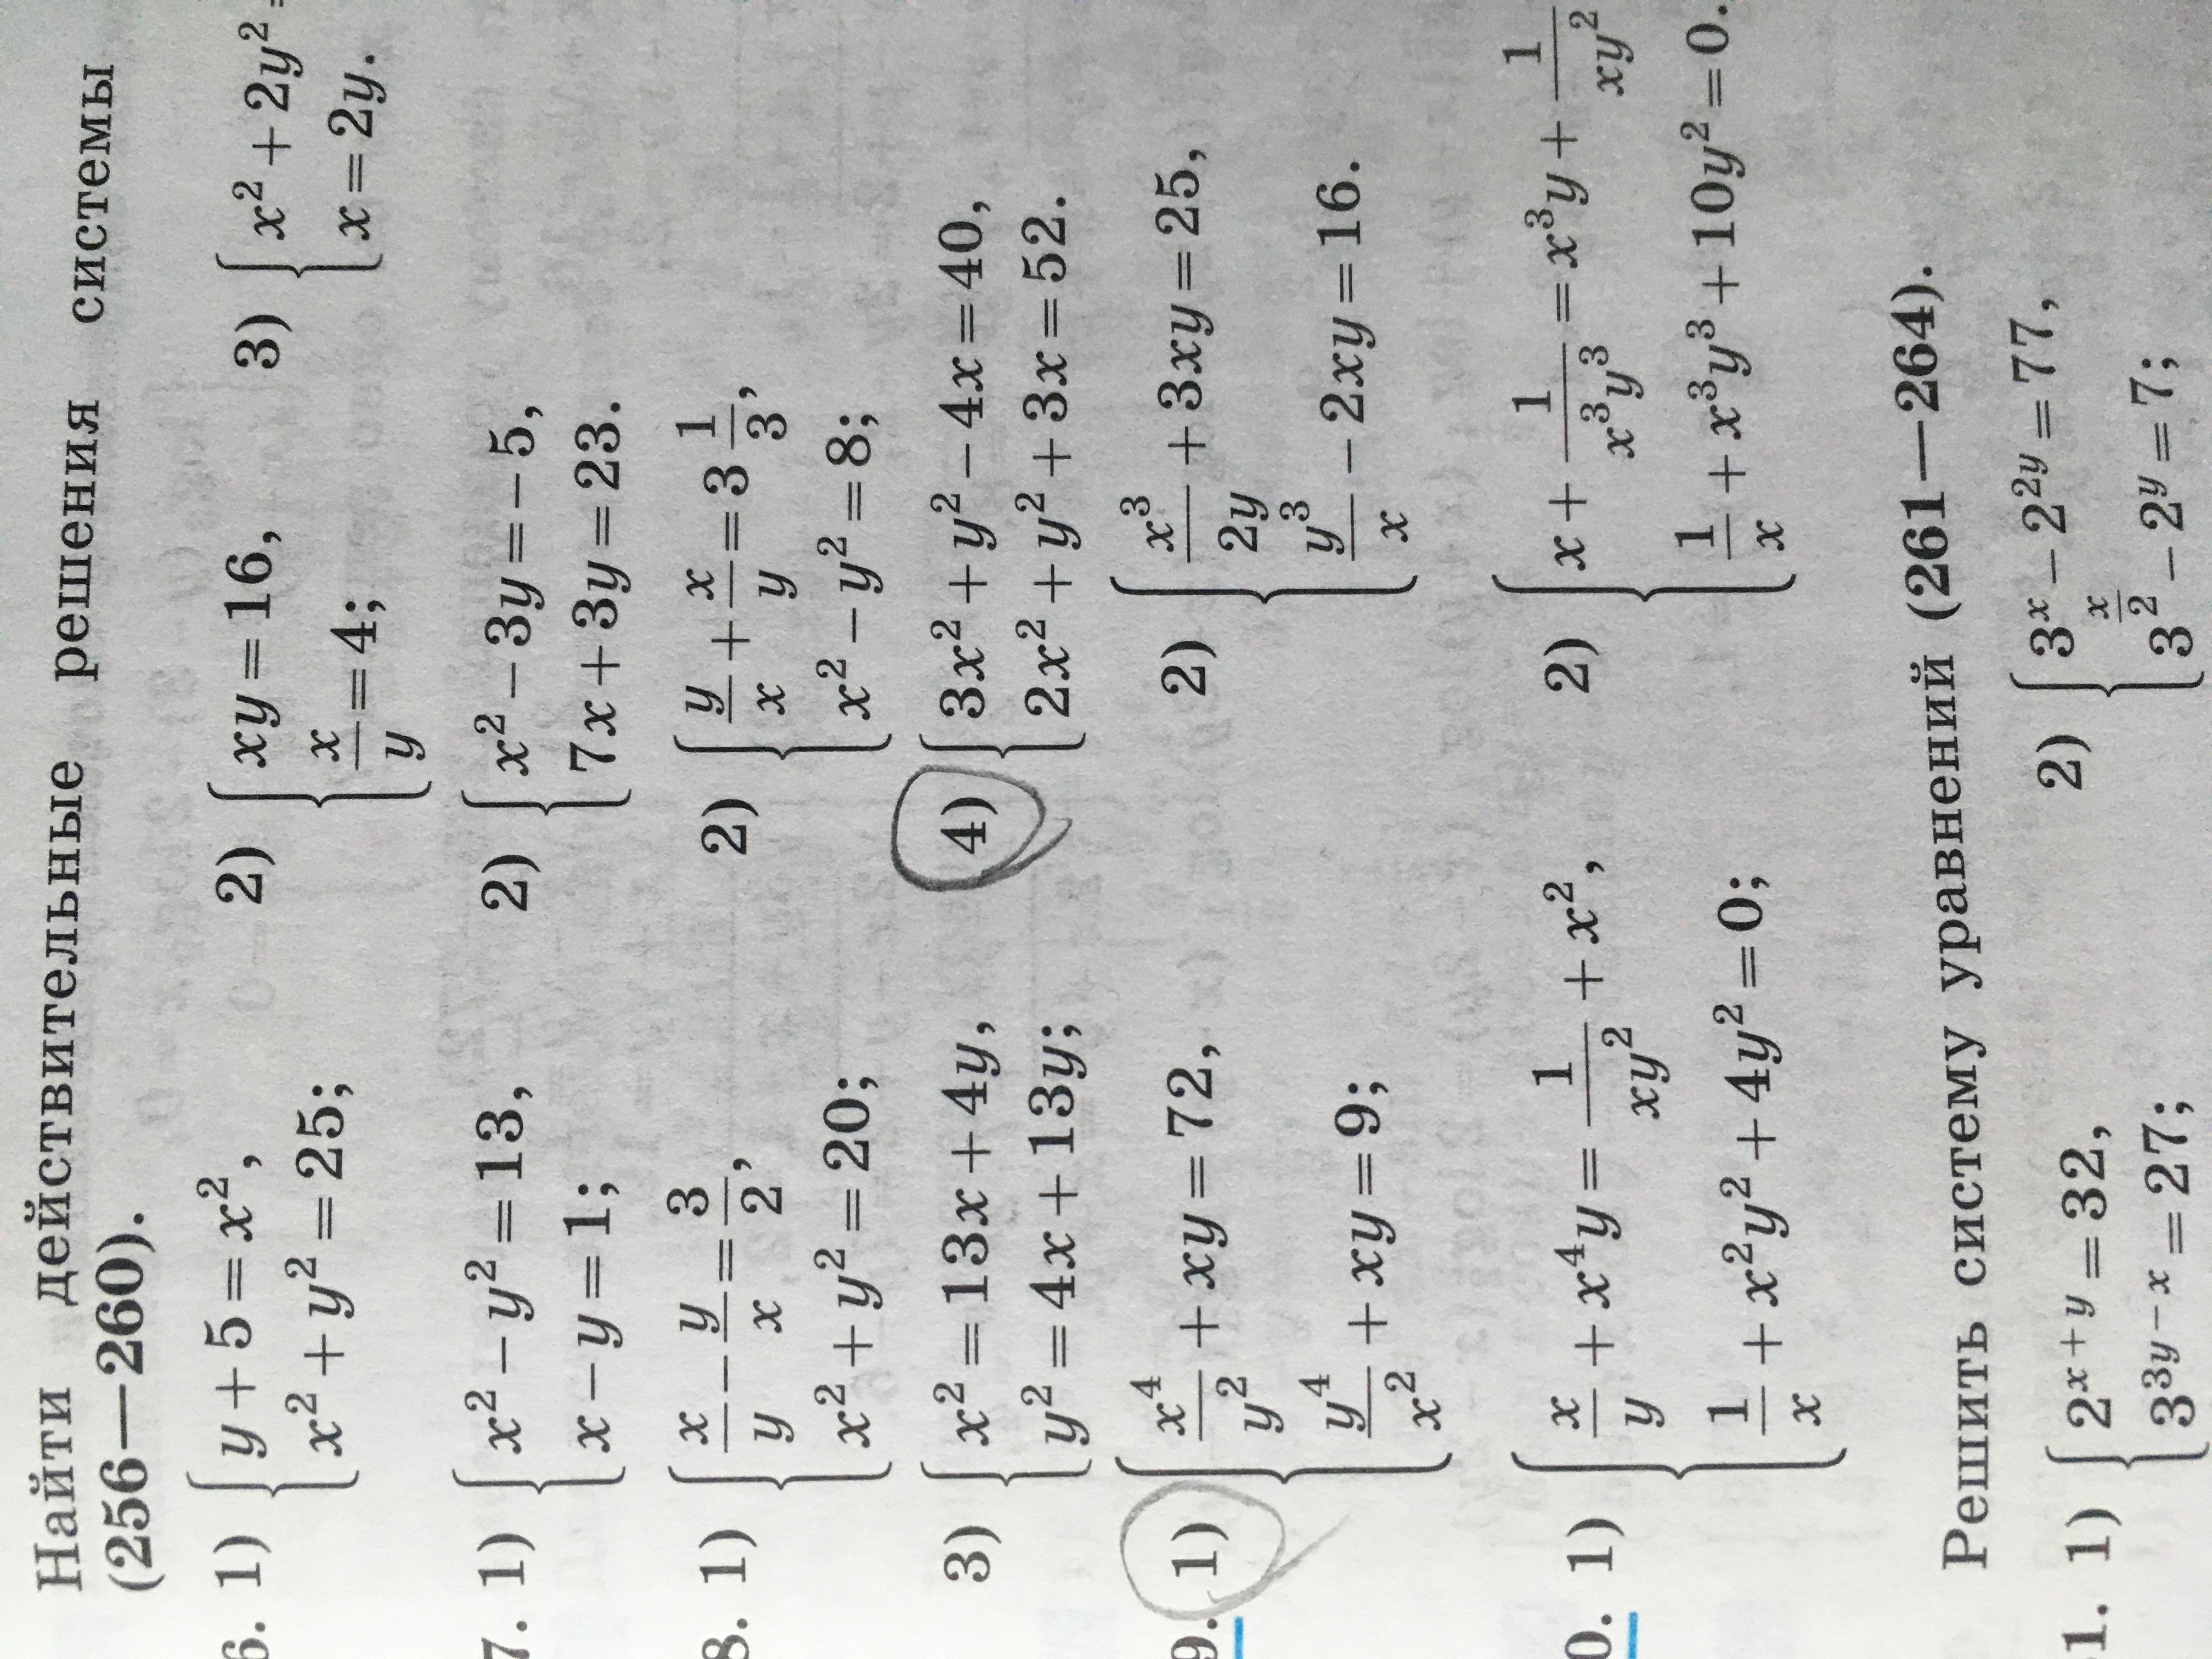 Найти действительные решения системы
(256—260).
6. 1) { y + 5 = x², x² + y² = 25; 2) { xy = 16, x/y = 4; 3) { x² + 2y² = x = 2y.
7. 1) { x² − y² = 13, x − y = 1; 2) { x² − 3y = −5, 7x + 3y = 23.
8. 1) { x/y − y/x = 3/2, x² + y² = 20; 2) { y/x + x/y = 3 1/3, x² − y² = 8;
3) { x² = 13x + 4y, y² = 4x + 13y; 4) { 3x² + y² − 4x = 40, 2x² + y² + 3x = 52.
9. 1) { x⁴/y² + xy = 72, y⁴/x² + xy = 9; 2) { x³/2y + 3xy = 25, y³/x − 2xy = 16.
0. 1) { x/y + x⁴y = 1/xy² + x², 1/x + x²y² + 4y² = 0; 2) { x + 1/x³y³ = x³y + 1/xy² 1/x + x³y³ + 10y² = 0.
Решить систему уравнений (261—264).
1. 1) { 2ˣ⁺ʸ = 32, 3³ʸ⁻ˣ = 27; 2) { 3ˣ − 2²ʸ = 77, 3^(x/2) − 2ʸ = 7;